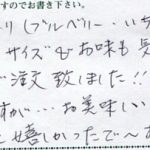 すのでお書き下さい。
り(ブルーベリー・いち
サイズもお味も気
ご注文致しました!!
すが…お美味しい
嬉しかったで〜